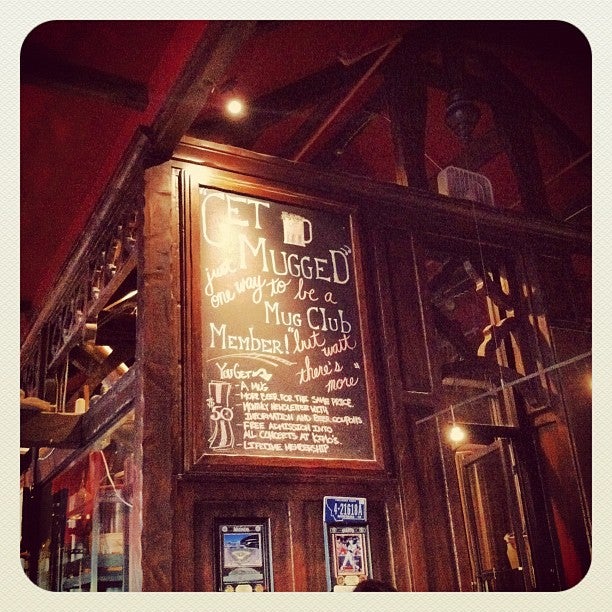 "GET
MUGGED"
just
one way to be a
MUG CLUB
MEMBER! "but wait
there's
more"
You Get
$50
- A MUG
- MORE BEER FOR THE SAME PRICE
- MONTHLY NEWSLETTER WITH
INFORMATION AND BEER COUPONS
- FREE ADMISSION INTO
ALL CONCERTS AT KIMO'S.
- LIFETIME MEMBERSHIP
4-21618A